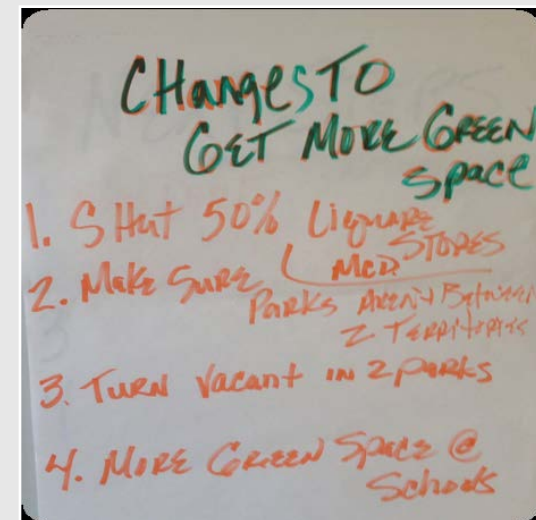 CHanges TO
GET MORE GREEN
Space
1. SHut 50% Liquare
STORES
McD.
2. Make Sure
Parks Aren't Between
2 Territories
3. Turn Vacant in 2 parks
4. More Green Space @
Schools